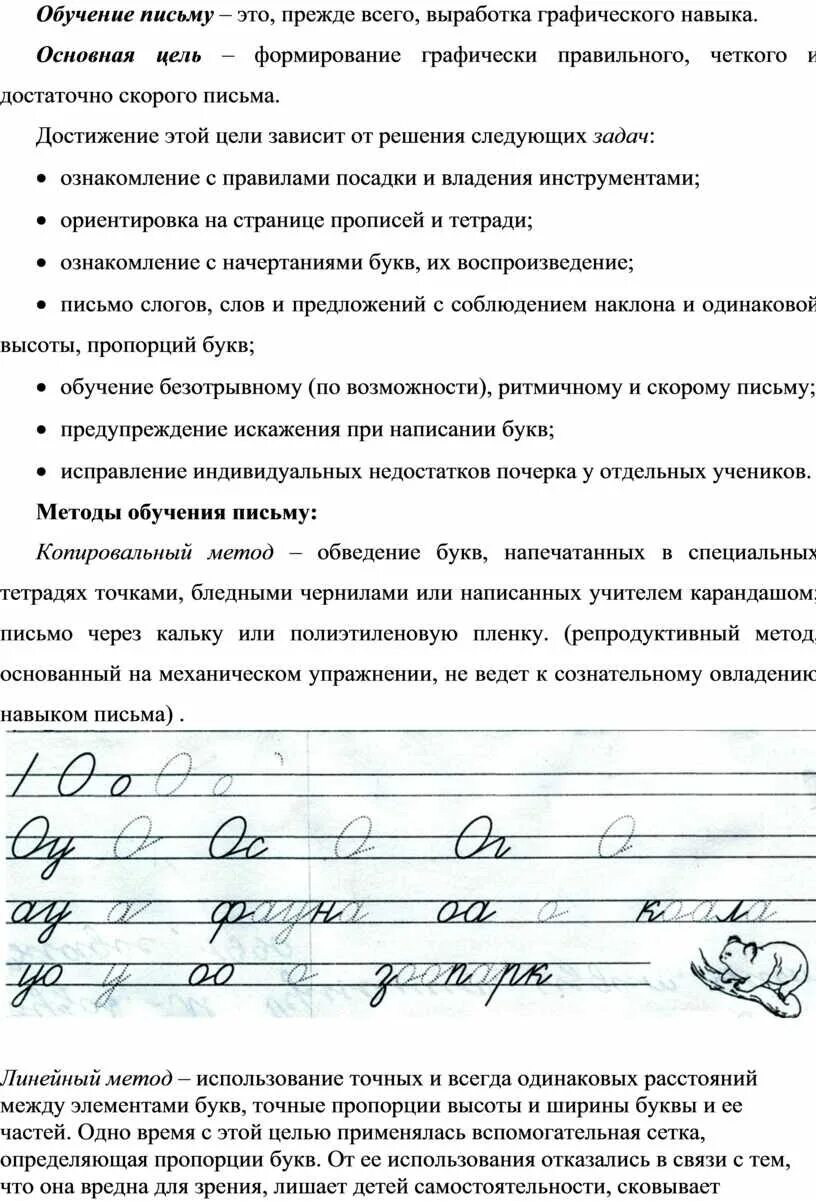 Обучение письму – это, прежде всего, выработка графического навыка.
Основная цель – формирование графически правильного, четкого и
достаточно скорого письма.
Достижение этой цели зависит от решения следующих задач:
• ознакомление с правилами посадки и владения инструментами;
• ориентировка на странице прописей и тетради;
• ознакомление с начертаниями букв, их воспроизведение;
• письмо слогов, слов и предложений с соблюдением наклона и одинаковой
высоты, пропорций букв;
• обучение безотрывному (по возможности), ритмичному и скорому письму;
• предупреждение искажения при написании букв;
• исправление индивидуальных недостатков почерка у отдельных учеников.
Методы обучения письму:
Копировальный метод – обведение букв, напечатанных в специальных
тетрадях точками, бледными чернилами или написанных учителем карандашом;
письмо через кальку или полиэтиленовую пленку. (репродуктивный метод,
основанный на механическом упражнении, не ведет к сознательному овладению
навыком письма) .
О о О о
Оу О Ос О Ог О
ау а фауна оа о коала
уо у оо о зоопарк
Линейный метод – использование точных и всегда одинаковых расстояний
между элементами букв, точные пропорции высоты и ширины буквы и ее
частей. Одно время с этой целью применялась вспомогательная сетка,
определяющая пропорции букв. От ее использования отказались в связи с тем,
что она вредна для зрения, лишает детей самостоятельности, сковывает